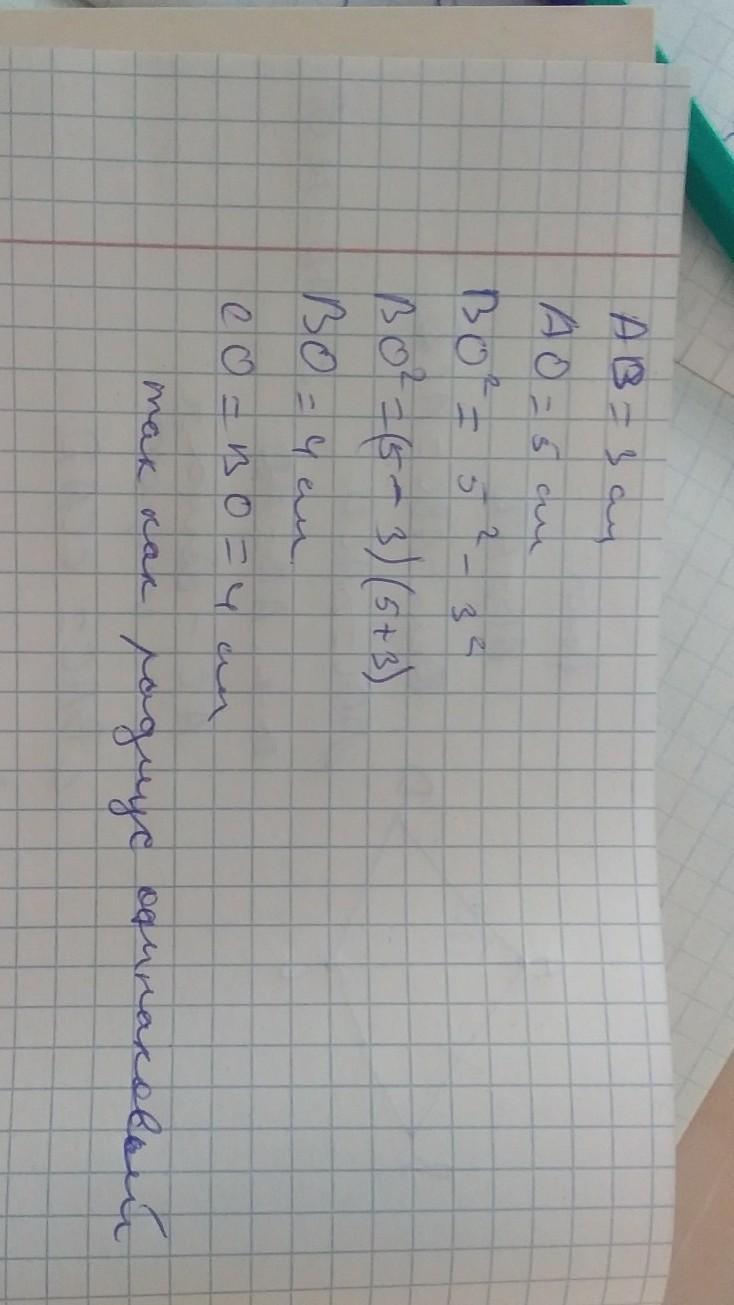 AB = 3 см
AO = 5 см
BO² = 5² - 3²
BO² = (5 - 3)(5+3)
BO = 4 см
CO = BO = 4 см
так как радиус одинаковый